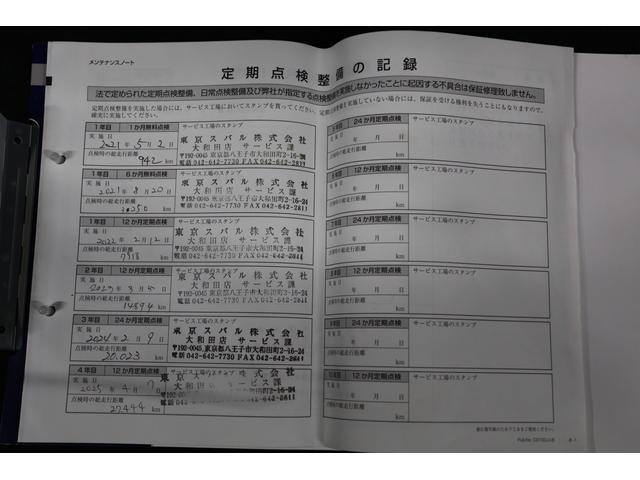 メンテナンスノート
定期点検整備の記録
法で定められた定期点検整備、日常点検整備及び弊社が指定する点検整備を実施しなかったことに起因する不具合は保証修理致しません。
定期点検整備を実施した場合には、サービス工場においてスタンプを貰ってください。
確実に実施してください。
定期点検整備を実施していない場合には、保証を受ける権利を失うこともなりますので、
1年目 1か月無料点検 サービス工場のスタンプ
実施日 2021年5月2日
点検時の総走行距離
942 km
東京スバル株式会社
大和田店 サービス課
〒192-0045 東京都八王子市大和田町2-16-24
電話 042-642-7730 FAX 042-642-2811
1年目 6か月無料点検 サービス工場のスタンプ
実施日 2021年8月20日
点検時の総走行距離
km
東京スバル株式会社
大和田店 サービス課
〒192-0045 東京都八王子市大和田町2-16-24
電話 042-642-7730 FAX 042-642-2811
1年目 12か月定期点検 サービス工場のスタンプ
実施日 2022年2月12日
点検時の総走行距離
km
東京スバル株式会社
大和田店 サービス課
〒192-0045 東京都八王子市大和田町2-16-24
電話 042-642-7730 FAX 042-642-2811
2年目 12か月定期点検 サービス工場のスタンプ
実施日 2023年3月5日
点検時の総走行距離
14894 km
東京スバル株式会社
大和田店 サービス課
〒192-0045 東京都八王子市大和田町2-16-24
電話 042-642-7730 FAX 042-642-2811
3年目 24か月定期点検 サービス工場のスタンプ
実施日 2024年2月9日
点検時の総走行距離
20,023 km
東京スバル株式会社
大和田店 サービス課
〒192-0045 東京都八王子市大和田町2-16-24
電話 042-642-7730 FAX 042-642-2811
4年目 12か月定期点検 サービス工場のスタンプ
実施日 2025年4月7日
点検時の総走行距離
27444 km
東京スバル株式会社
大和田店 サービス課
〒192-0045 東京都八王子市大和田町2-16-24
電話 042-642-7730 FAX 042-642-2811
24か月定期点検 サービス工場のスタンプ
実施日 年 月 日
点検時の総走行距離
km
12か月定期点検 サービス工場のスタンプ
年 月 日
点検時の総走行距離
km
24か月定期点検 サービス工場のスタンプ
年 月 日
点検時の総走行距離
km
12か月定期点検 サービス工場のスタンプ
実施日 年 月 日
点検時の総走行距離
km
24か月定期点検 サービス工場のスタンプ
実施日 年 月 日
点検時の総走行距離
km
12か月定期点検 サービス工場のスタンプ
実施日 年 月 日
点検時の総走行距離
km